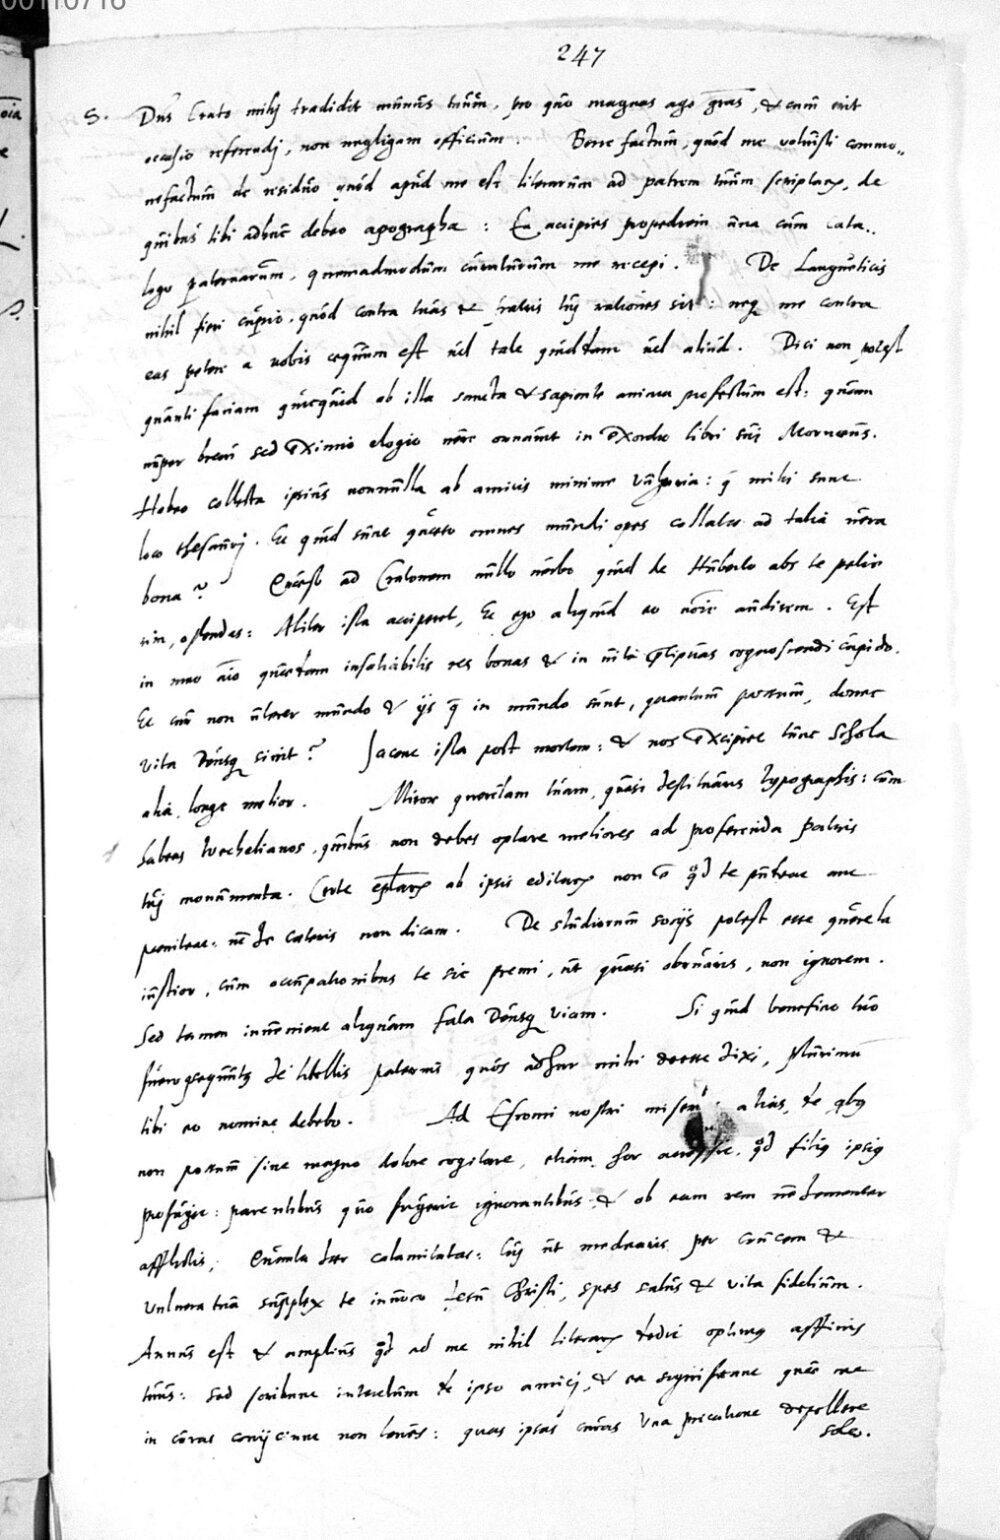 00110716
247
S. Dns Crato mihi tradidit munus tuum, pro quo magnas ago gras, & cum erit
occasio referendi, non negligam officium. Bene factum, quod me voluisti commo„
nefactum de residuo quod apud me est literarum ad patrem tuum scriptarum, de
quibus tibi adhuc debeo apographa: Ea accipies propediem una cum cata„
logo paternarum, quemadmodum curaturum me recepi. De Langueticis
nihil fieri cupio, quod contra tuas & fratris tui rationes sit: neq me contra
eas petere a vobis aequum est vel tale quiddam vel aliud. Dici non potest
quanti faciam quicquid ab illa sancta & sapiente anima profectum est: quam
nuper brevi sed eximio elogio vere ornavit in exordio libri sui Mornaeus.
Habeo collecta ipsius nonnulla ab amicis minime vulgaria: quae mihi sunt
loco thesauri. Et quid sunt quaeso omnes mundi opes collatae ad talia vera
bona? Quaeso ad Cratonem nullo verbo quid de Huberto abs te petie
rim, ostendas: Aliter ista acciperet, Et ego aliquid eo noie audirem. Est
in meo aio quaedam insatiabilis res bonas & in vita cognoscendi cupido.
Et cur non uterer mundo & ijs quae in mundo sunt, quantum possum, donec
vita Deusq sinit? Jacent ista post mortem: & nos excipiet tunc Schola
alia, longe melior. Miror querelam tuam, quasi destituaris typographis: cum
habeas Wechelianos, quibus non debes optare meliores ad proferenda patris
tui monumenta. Certe eplarum ab ipsis editarum non e qd te
peniteat: ne de caeteris non dicam. De studiorum socijs potest esse querela
iustior, cum occupationibus te sic premi, ut quasi obruaris, non ignorem.
Sed tamen invenient aliquam fata Deusq viam. Si quid beneficio tuo
de libellis paternis quos adhuc mihi deesse dixi, plurimum
tibi eo nomine debebo. Ad Esromi nostri alias, de qbq
non possum sine magno dolore cogitare, etiam hoc accessit, qd filiq ipsiq
profugit: parentibus quo fugerit ignorantibus & ob eam rem vehementer
afflictis. calamitatas: Cui ut medearis per crucem &
vulnera tua supplex te invoco Jesu Christi, spes salus & vita fidelium.
Annus est & amplius qd ad me nihil literarum dedit optimus affinis
tuus: sed scribunt interdum de ipso amici, & ea significant quae me
in curas conijciunt non leves: quas ipsas curas una precatione depellere
soleo.